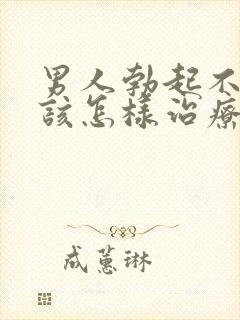 男人勃起不
該怎樣治療
成蕙琳